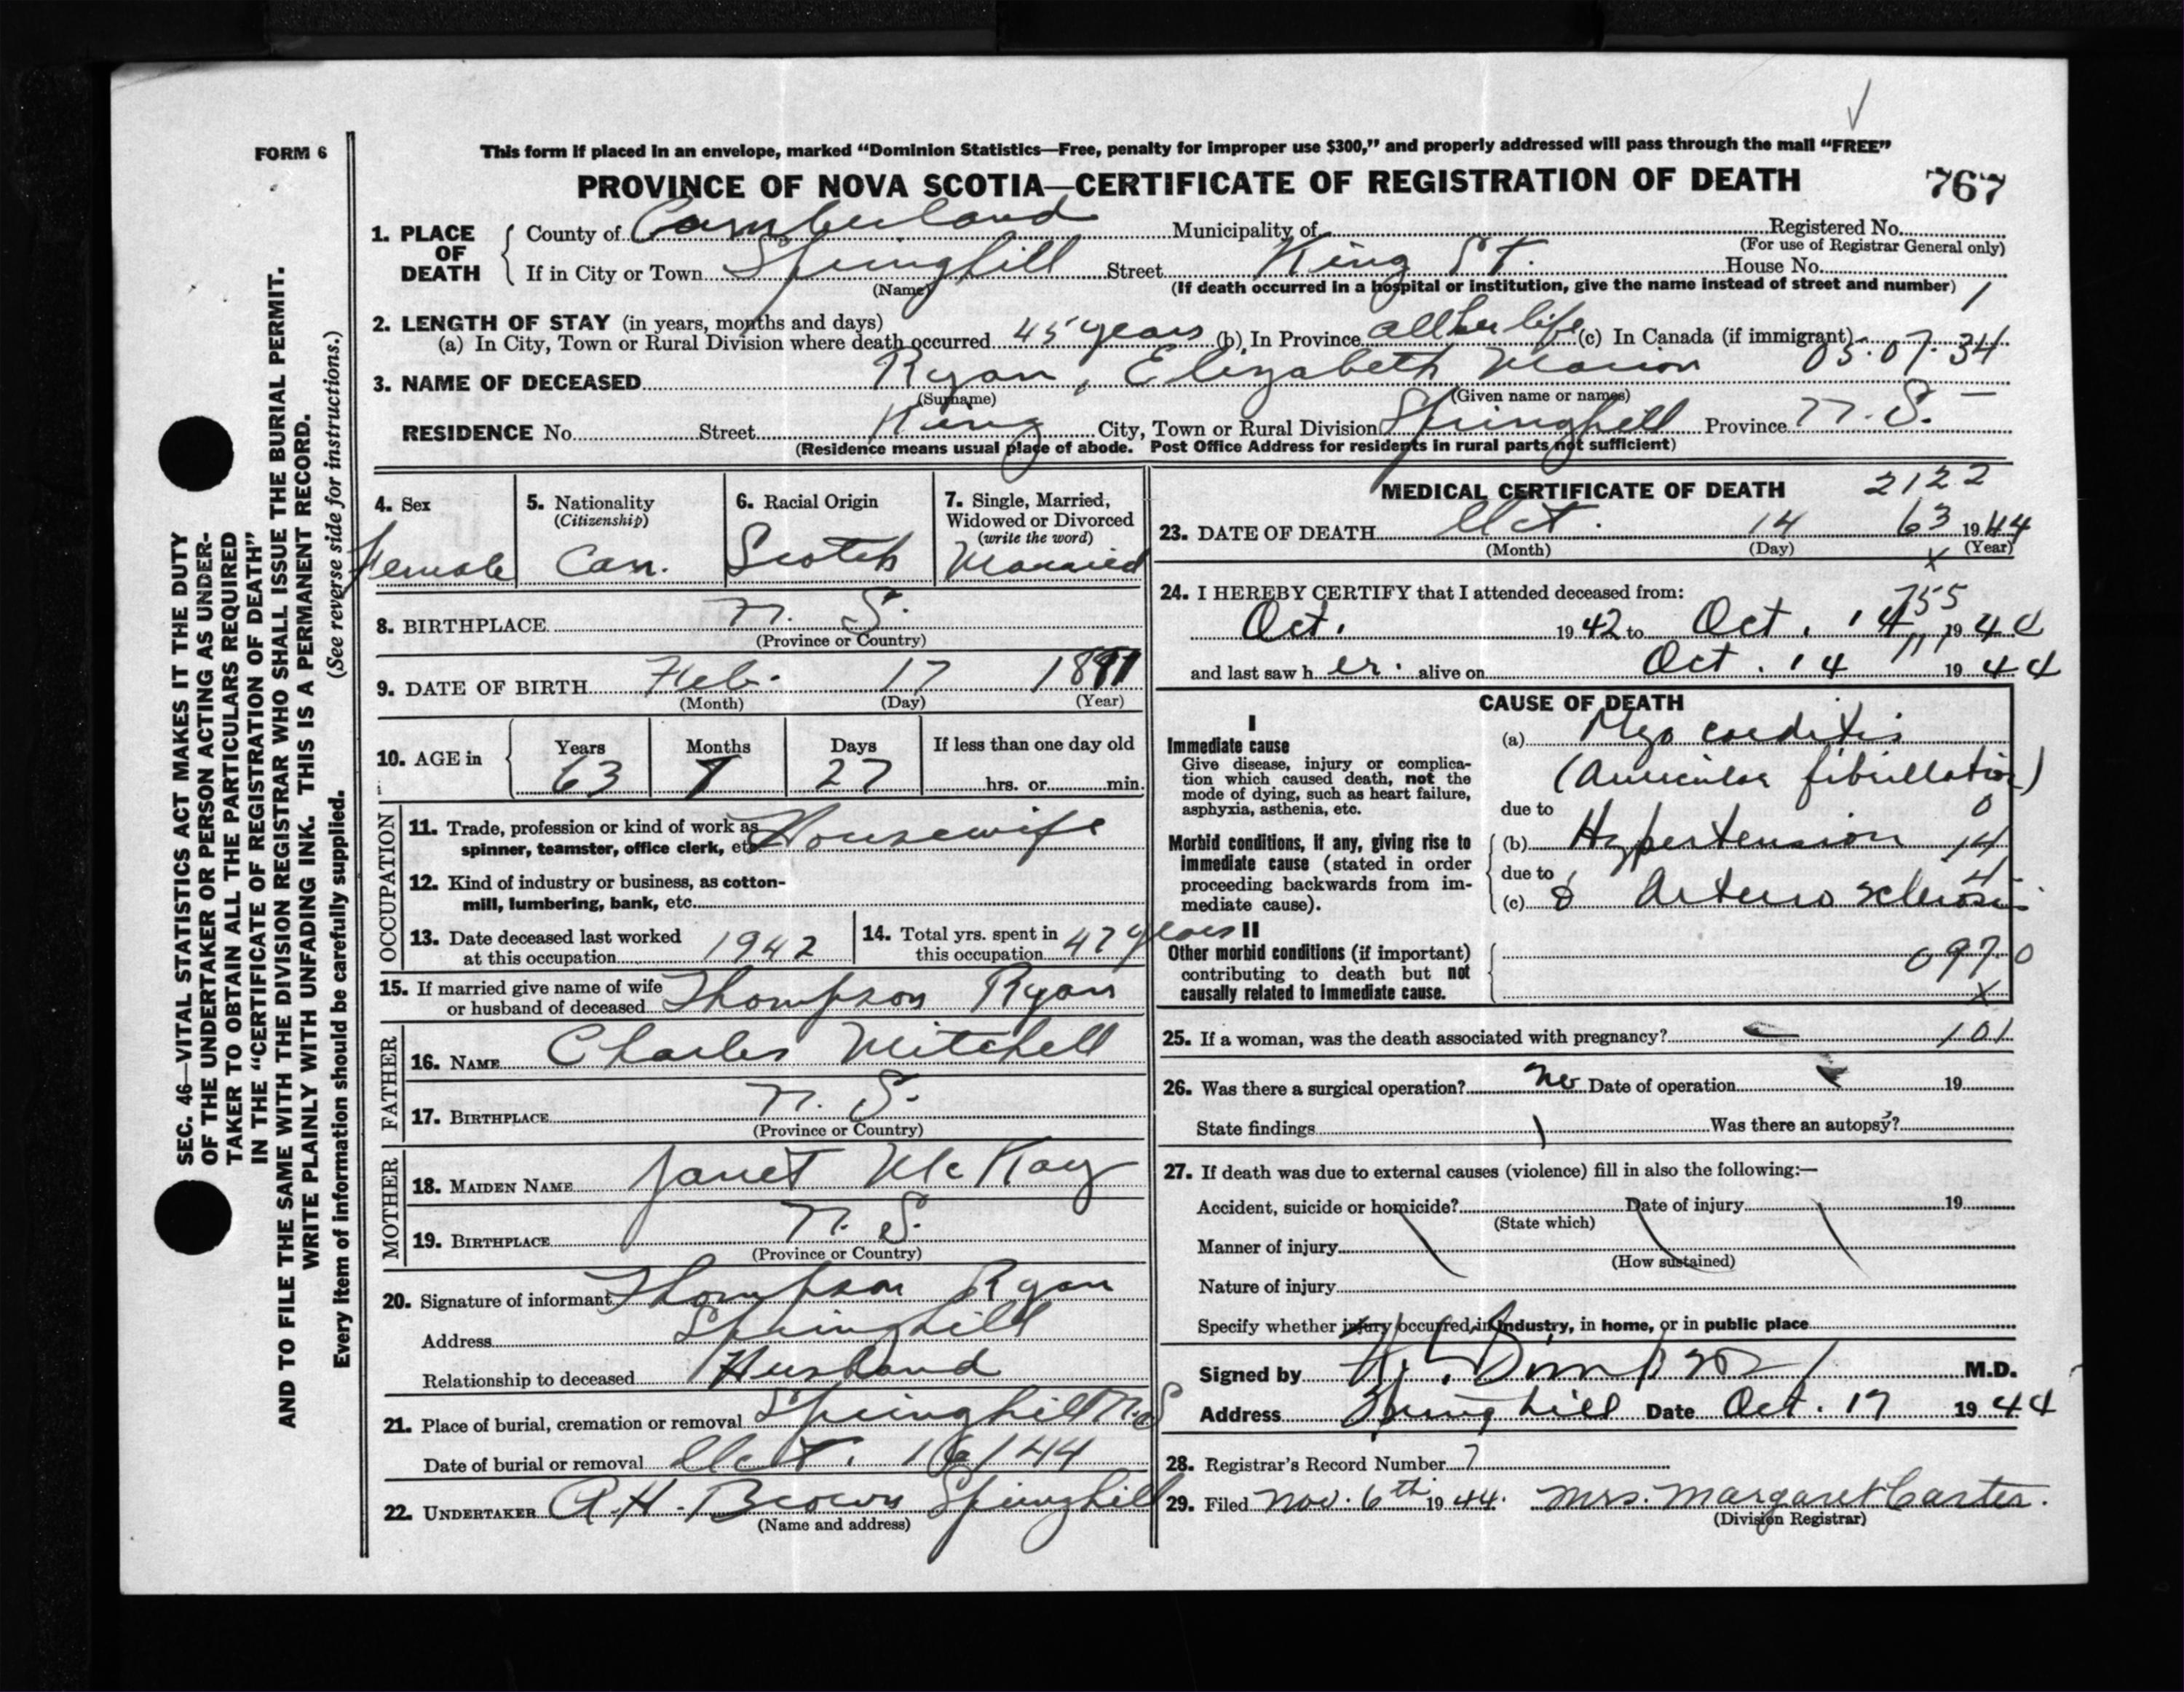 FORM 6
This form if placed in an envelope, marked “Dominion Statistics—Free, penalty for improper use $300,” and properly addressed will pass through the mail “FREE”
PROVINCE OF NOVA SCOTIA—CERTIFICATE OF REGISTRATION OF DEATH 767
1. PLACE OF DEATH County of Cumberland Municipality of Registered No.
(For use of Registrar General only)
If in City or Town Springhill Street King St. House No.
(Name) (If death occurred in a hospital or institution, give the name instead of street and number) 1
2. LENGTH OF STAY (in years, months and days)
(a) In City, Town or Rural Division where death occurred 45 years (b) In Province all her life (c) In Canada (if immigrant)
05.07.34
3. NAME OF DECEASED Ryan, Elizabeth Marion
(Surname) (Given name or names)
RESIDENCE No. Street King City, Town or Rural Division Springhill Province N. S.
(Residence means usual place of abode. Post Office Address for residents in rural parts not sufficient)
4. Sex
Female
5. Nationality
(Citizenship)
Can.
6. Racial Origin
Scotch
7. Single, Married,
Widowed or Divorced
(write the word)
Married
8. BIRTHPLACE N. S.
(Province or Country)
9. DATE OF BIRTH Feb. 17 1881
(Month) (Day) (Year)
10. AGE in Years Months Days If less than one day old
63 7 27 hrs. or min.
OCCUPATION
11. Trade, profession or kind of work as
spinner, teamster, office clerk, etc. Housewife
12. Kind of industry or business, as cotton-
mill, lumbering, bank, etc.
13. Date deceased last worked
at this occupation 1942
14. Total yrs. spent in
this occupation 47 years
15. If married give name of wife
or husband of deceased Thompson Ryan
FATHER
16. NAME Charles Mitchell
17. BIRTHPLACE N. S.
(Province or Country)
MOTHER
18. MAIDEN NAME Janet McKay
19. BIRTHPLACE N. S.
(Province or Country)
20. Signature of informant Thompson Ryan
Address Springhill
Relationship to deceased Husband
21. Place of burial, cremation or removal Springhill N.S
Date of burial or removal Oct. 16/44
22. UNDERTAKER A.H. Brown Springhill
(Name and address)
MEDICAL CERTIFICATE OF DEATH 2122
23. DATE OF DEATH Oct. 14 63 1944
(Month) (Day) x (Year)
24. I HEREBY CERTIFY that I attended deceased from:
755
Oct. 1942 to Oct. 14 1944
111
and last saw her alive on Oct. 14 1944
CAUSE OF DEATH
I
Immediate cause
Give disease, injury or complica-
tion which caused death, not the
mode of dying, such as heart failure,
asphyxia, asthenia, etc.
(a) Myocarditis
(Auricular fibrillation)
due to 0
Morbid conditions, if any, giving rise to
immediate cause (stated in order
proceeding backwards from im-
mediate cause).
(b) Hypertension 14
due to 4
(c) & Arterio sclerosis
II
Other morbid conditions (if important)
contributing to death but not
causally related to immediate cause.
097.0
x
25. If a woman, was the death associated with pregnancy? 101
26. Was there a surgical operation? No Date of operation 19
State findings Was there an autopsy?
27. If death was due to external causes (violence) fill in also the following:—
Accident, suicide or homicide? Date of injury 19
(State which)
Manner of injury
(How sustained)
Nature of injury
Specify whether injury occurred in industry, in home, or in public place
Signed by M.D.
Address Springhill Date Oct. 17 1944
28. Registrar's Record Number 7
29. Filed Nov. 6th 1944. Mrs. Margaret Carter.
(Division Registrar)
SEC. 46—VITAL STATISTICS ACT MAKES IT THE DUTY
OF THE UNDERTAKER OR PERSON ACTING AS UNDER-
TAKER TO OBTAIN ALL THE PARTICULARS REQUIRED
IN THE “CERTIFICATE OF REGISTRATION OF DEATH”
AND TO FILE THE SAME WITH THE DIVISION REGISTRAR WHO SHALL ISSUE THE BURIAL PERMIT.
WRITE PLAINLY WITH UNFADING INK. THIS IS A PERMANENT RECORD.
Every item of information should be carefully supplied. (See reverse side for instructions.)